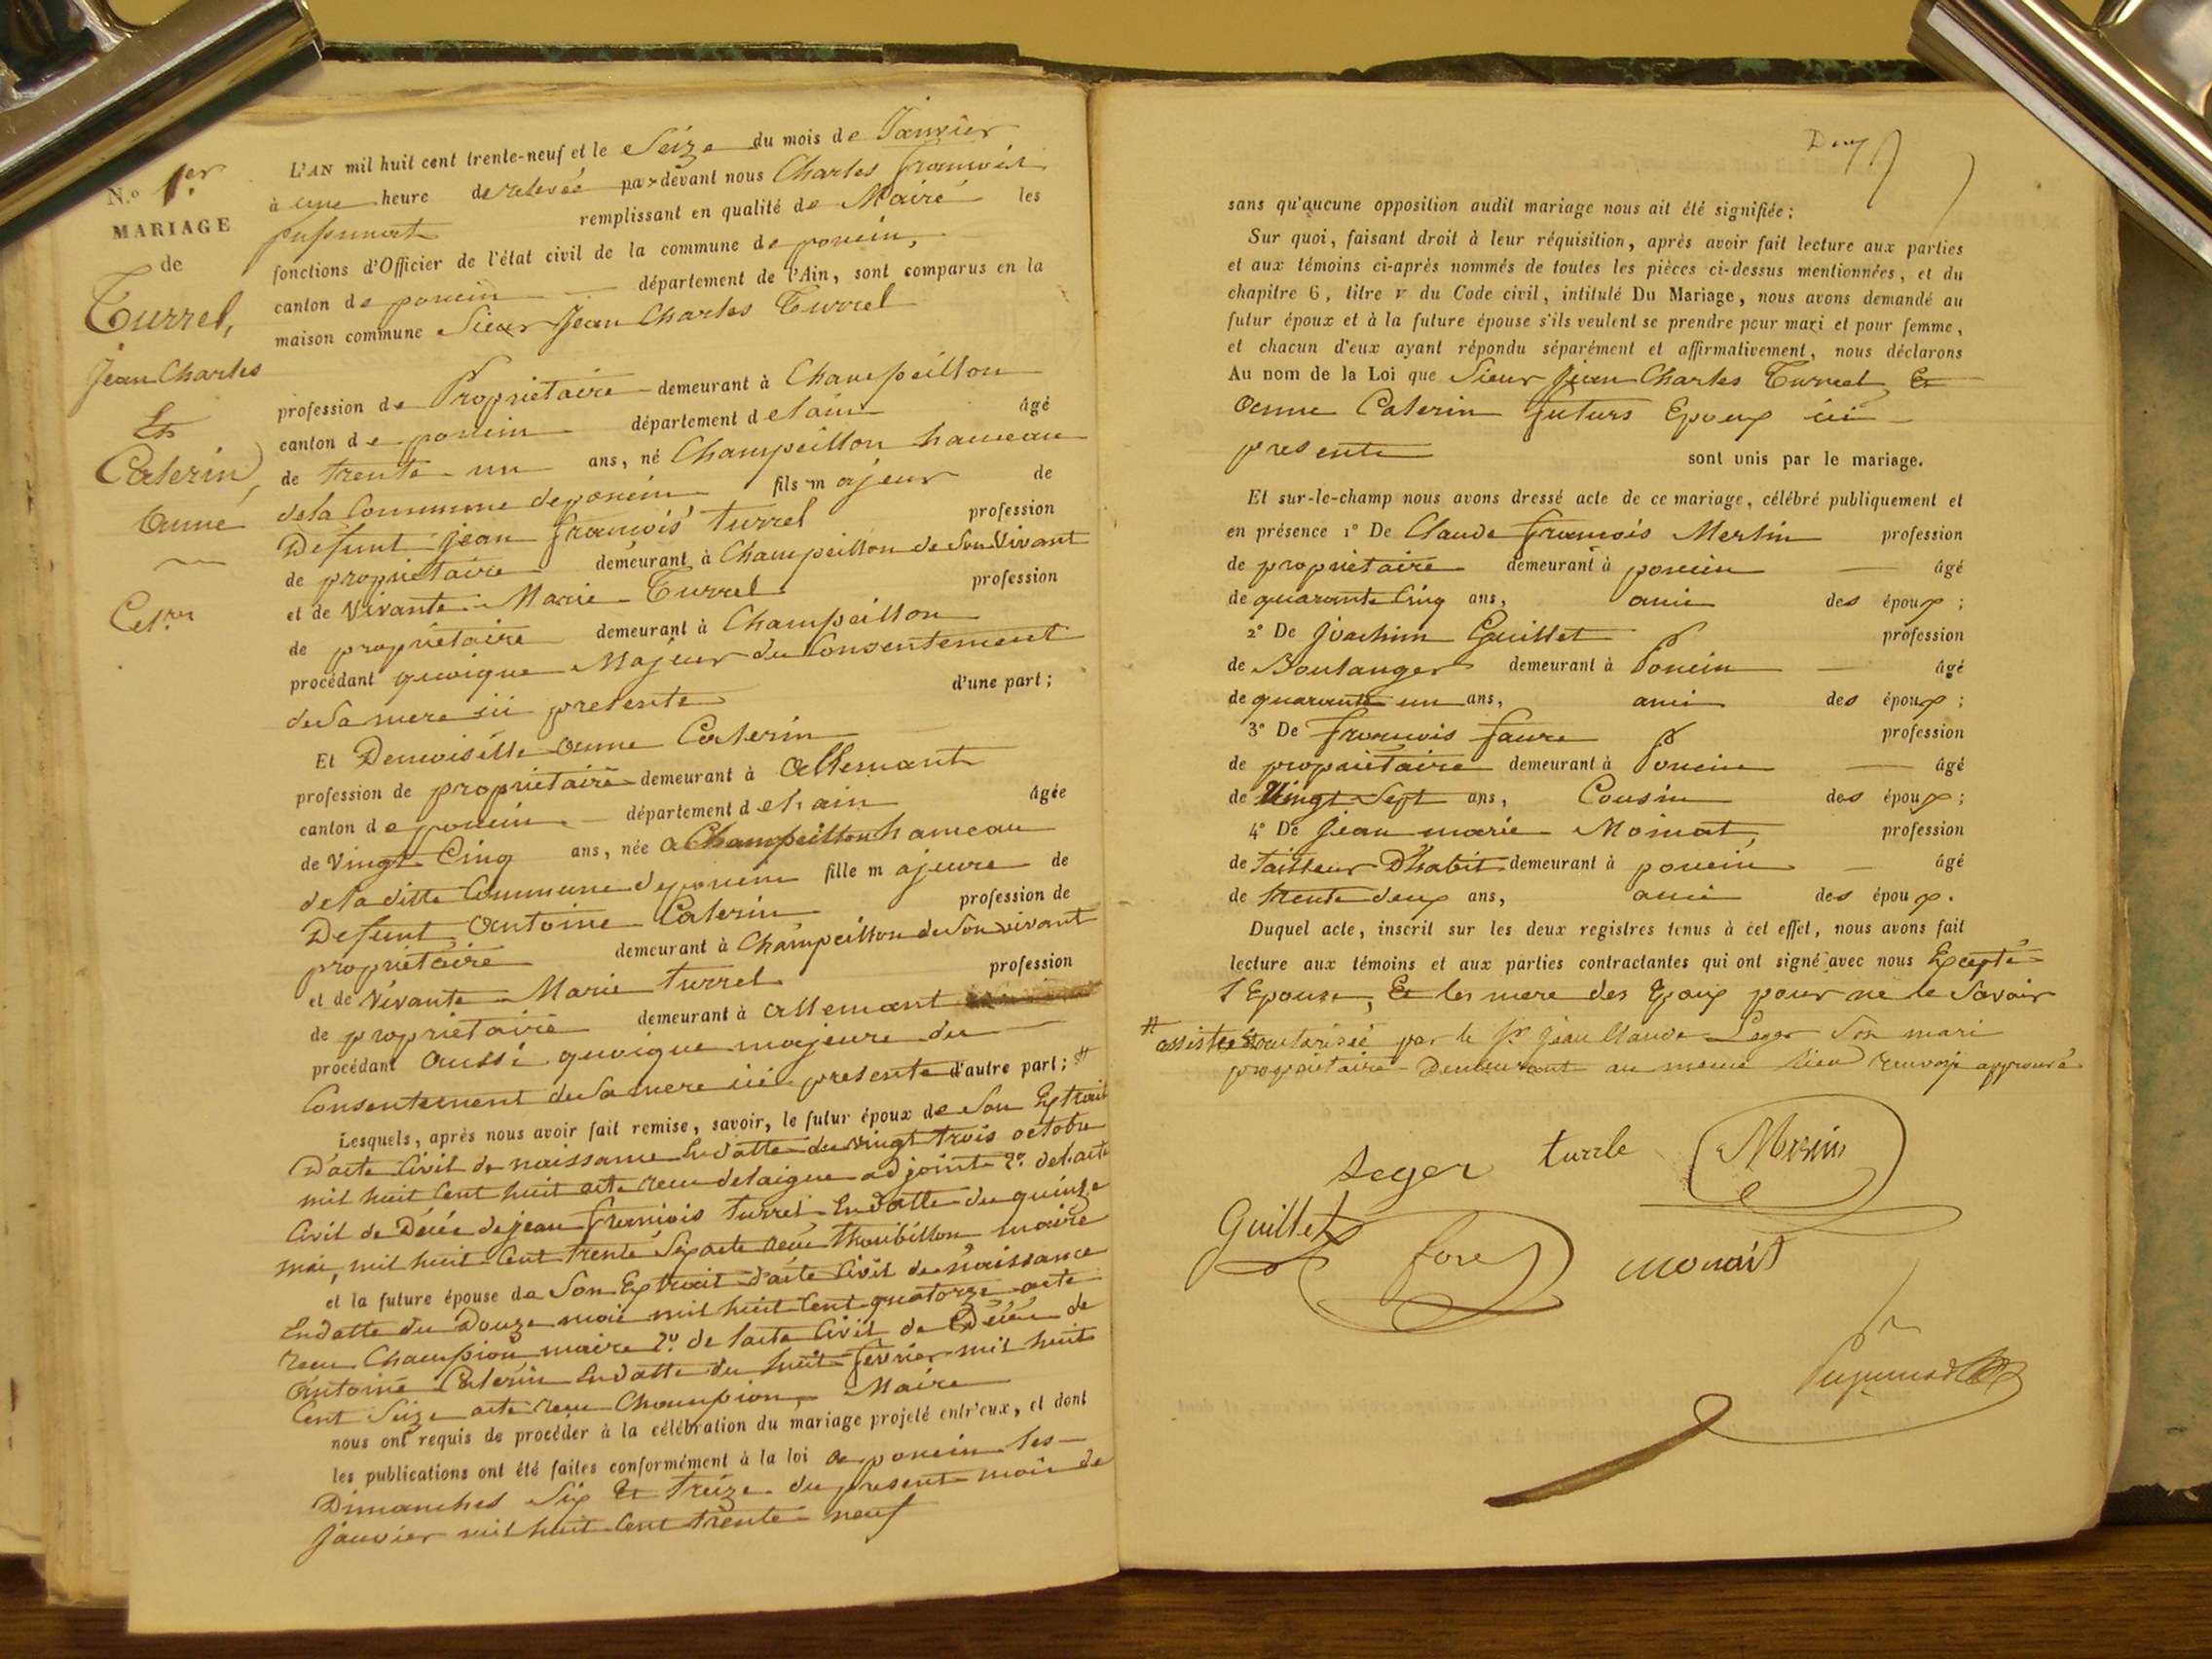 N.º 1.er
MARIAGE
de
Turrel,
Jean Charles
Et
Caterin,
Anne
L'AN mil huit cent trente-neuf et le Seize du mois de Janvier
à une heure de relevée par-devant nous Charles françois
remplissant en qualité de Maire les
fonctions d'Officier de l'état civil de la commune de poncin,
canton de poncin département de l'Ain, sont comparus en la
maison commune Sieur Jean Charles Turrel
profession de Propriétaire demeurant à Champeillon
canton de poncin département de lain âgé
de trente-un ans, né Champeillon hameau
de la Commune de poncin fils majeur de
Defunt jean françois turrel profession
de propriétaire demeurant à Champeillon de Son Vivant
et de Vivante Marie Turrel profession
de propriétaire demeurant à Champeillon
procédant quoique Majeur du Consentement
de Sa mere ici presente d'une part;
Et Demoiselle anne Caterin
profession de propriétaire demeurant à Allemant
canton de poncin département de l'ain âgée
de Vingt Cinq ans, née a Champeillon hameau
de la ditte Commune de poncin fille majeure de
Defunt Antoine Caterin profession de
propriétaire demeurant à Champeillon de Son vivant
et de Vivante Marie turrel profession
de propriétaire demeurant à Allemant
procédant aussi quoique majeure du
Consentement de Sa mere ici presente d'autre part; #
Lesquels, après nous avoir fait remise, savoir, le futur époux de Son Extrait
D'acte Civil de naissance En datte du vingt trois octobre
mil huit Cent huit acte recu delaigue adjoint 2º de l'acte
Civil de Décés de jean françois turrel En datte du quinze
mai, mil huit Cent trente Six acte recu Thoubillon maire
et la future épouse de Son Extrait d'acte Civil de naissance
En datte du Douze mai mil huit Cent quatorze acte
recu Champion maire 2º de l'acte Civil de Décés de
Antoine Caterin En datte du huit fevrier mil huit
Cent Seize acte recu Champion, Maire
nous ont requis de procéder à la célébration du mariage projeté entr'eux, et dont
les publications ont été faites conformément à la loi a poncin les
Dimanches Six Et treize du present mois de
janvier mil huit Cent trente neuf
sans qu'aucune opposition audit mariage nous ait été signifiée;
Sur quoi, faisant droit à leur réquisition, après avoir fait lecture aux parties
et aux témoins ci-après nommés de toutes les pièces ci-dessus mentionnées, et du
chapitre 6, titre v du Code civil, intitulé Du Mariage, nous avons demandé au
futur époux et à la future épouse s'ils veulent se prendre pour mari et pour femme,
et chacun d'eux ayant répondu séparément et affirmativement, nous déclarons
Au nom de la Loi que Sieur Jean Charles Turrel Et
Anne Caterin futurs Epoux ici
presente sont unis par le mariage.
Et sur-le-champ nous avons dressé acte de ce mariage, célébré publiquement et
en présence 1º De Claude françois Merlin profession
de propriétaire demeurant à poncin âgé
de quarante Cinq ans, ami des époux;
2º De Joachim Guillet profession
de Boulanger demeurant à Poncin âgé
de quarante un ans, ami des époux;
3º De françois faure profession
de propriétaire demeurant à Poncin âgé
de Vingt Sept ans, Cousin des époux;
4º De Jean marie Moinat, profession
de tailleur D'habit demeurant à poncin âgé
de trente deux ans, ami des époux.
Duquel acte, inscrit sur les deux registres tenus à cet effet, nous avons fait
lecture aux témoins et aux parties contractantes qui ont signé avec nous Excepté
l'Epouse, Et les mere des Epoux pour ne le Savoir
# assistée Et autorisée par le Sr jean Claude Leger Son mari
propriétaire Demeurant au meme lieu renvoi approuvé
Leger turrle
Guillet fore monait